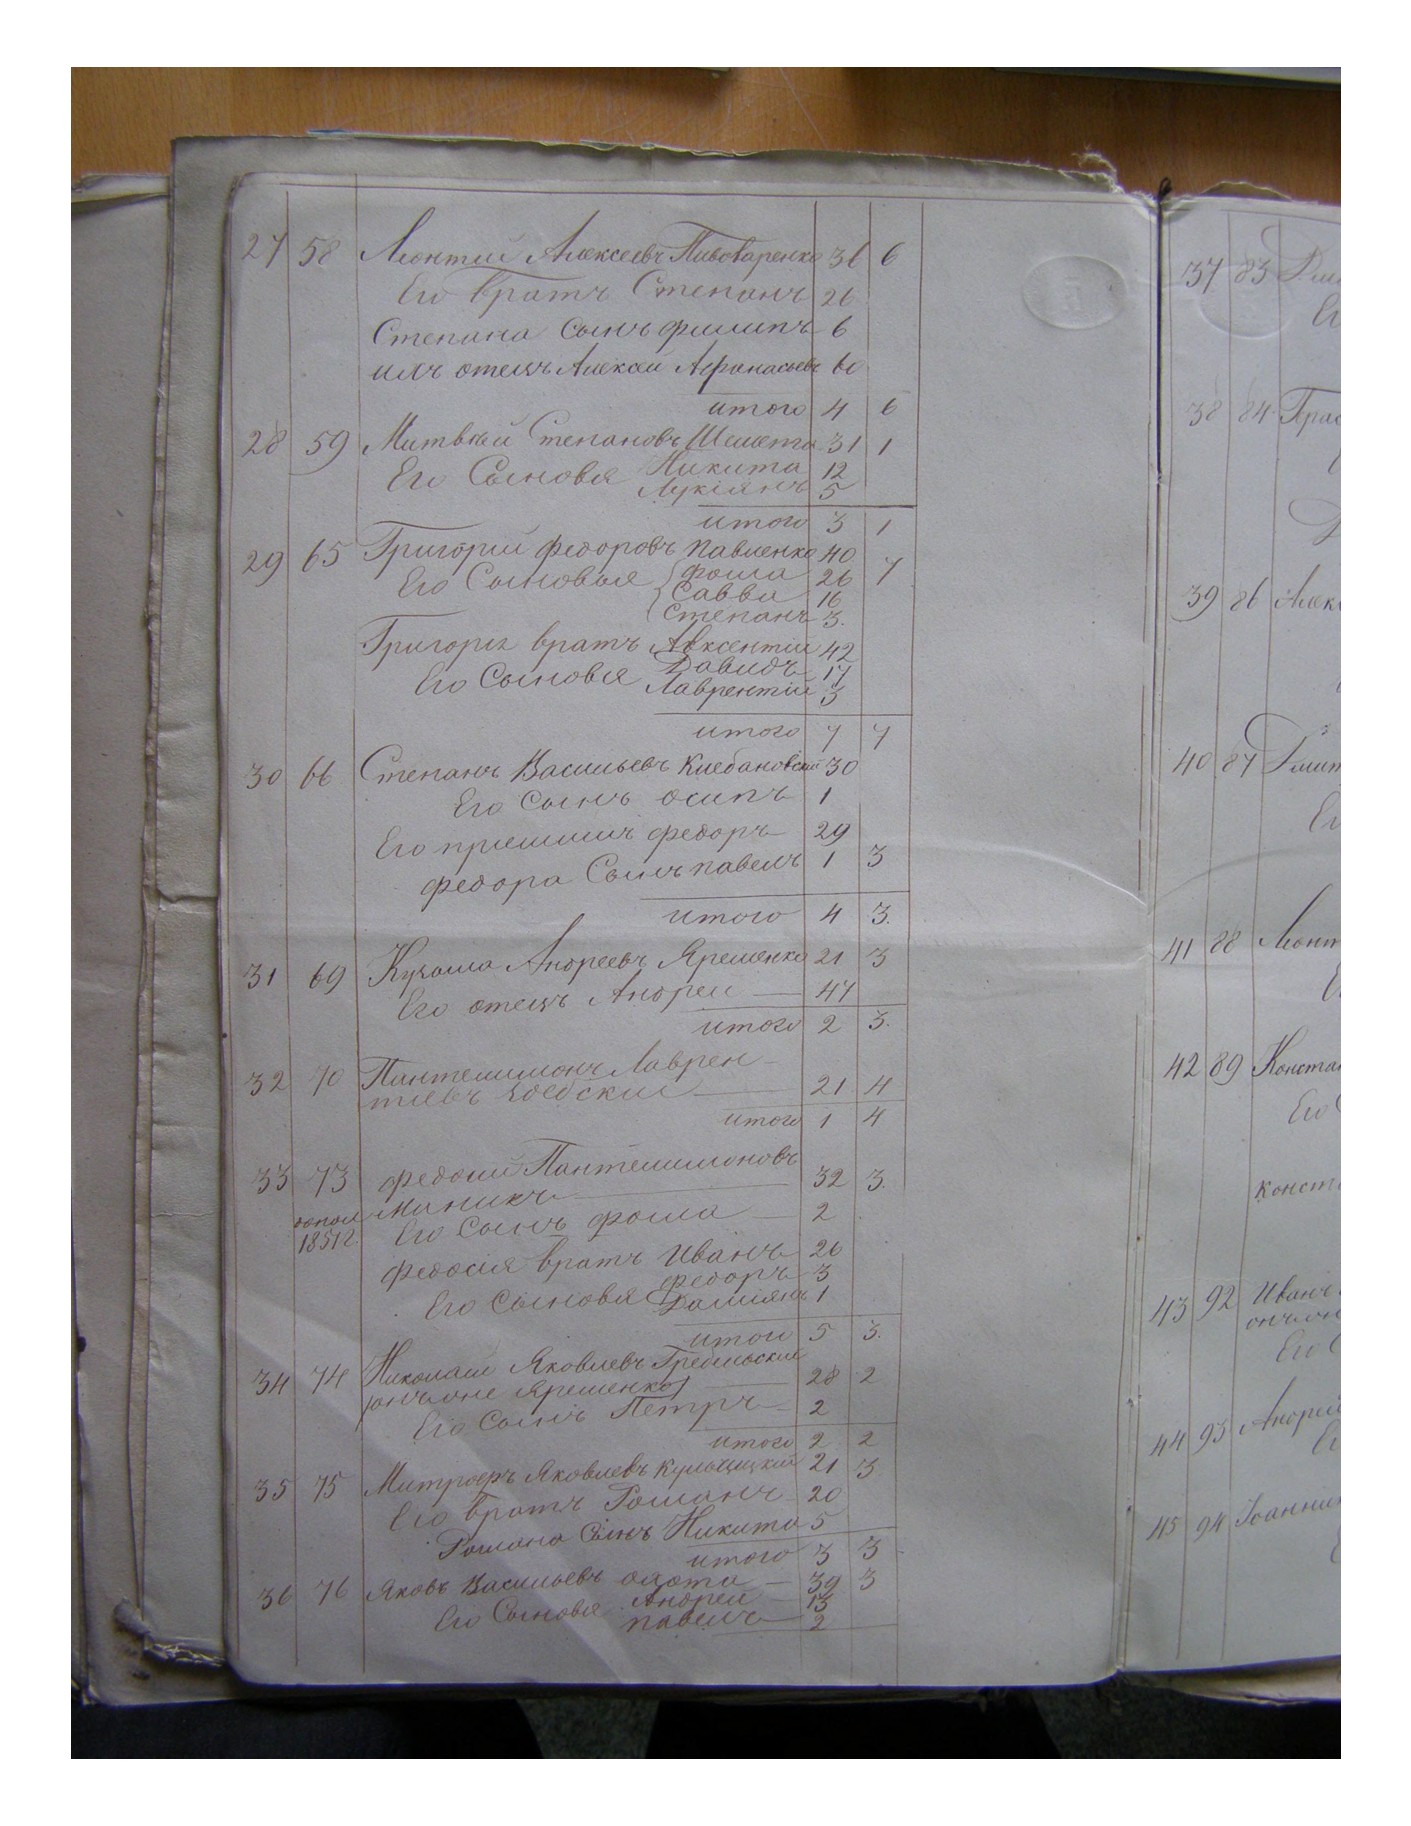 27 58 Леонтий Алексеевъ Пивоваренко 36 6
Его братъ Степанъ 26
Степана Сынъ филипъ 6
ихъ отецъ Алексей Афанасьевъ 60
итого 4 6
28 59 Матвей Степановъ Шемета 31 1
Его Сыновя Никита 12
Лукіянъ 5
итого 3 1
29 65 Григорий федоровъ павленко 40 7
Его Сыновья фома 26
Савва 16
Степанъ 3.
Григория братъ Авксентій 42
Его Сыновя Давидъ 17
Лаврентій 3
итого 7 7
30 66 Степанъ Васильевъ Клебановский 30
Его Сынъ осипъ 1
Его приемышъ федоръ 29
федора Сынъ павелъ 1 3
итого 4 3.
31 69 Кузьма Андреевъ Яременко 21 3
Его отецъ Андрей 47
итого 2 3.
32 70 Пантелимонъ Лаврен
тиевъ 21 4
итого 1 4
33 73 федосий Пантелимоновъ
миникъ 32 3.
допол 1851 г. Его Сынъ фома 2
федосия братъ Иванъ 26
федоръ 3
Его Сыновя Дамиянъ 1
итого 5 3.
34 74 Николай Яковлевъ Гребельский
(онъ же Яременко) 28 2
Его Сынъ Петръ 2
итого 2 2
35 75 Митрофъ Яковлевъ Кульчицкий 21 3
Его братъ Романъ 20
Романа Сынъ Никита 5
итого 3 3
36 76 Яковъ Васильевъ 39 3
Его Сыновя Андрей 13
павелъ 2
37 83
38 84
39 86 Алек
40 87 Дмит
41 88 Леонт
42 89 Констан
Его
конст
43 92 Иванъ
онъ же
Его
44 93 Андрей
45 94 Іоанни